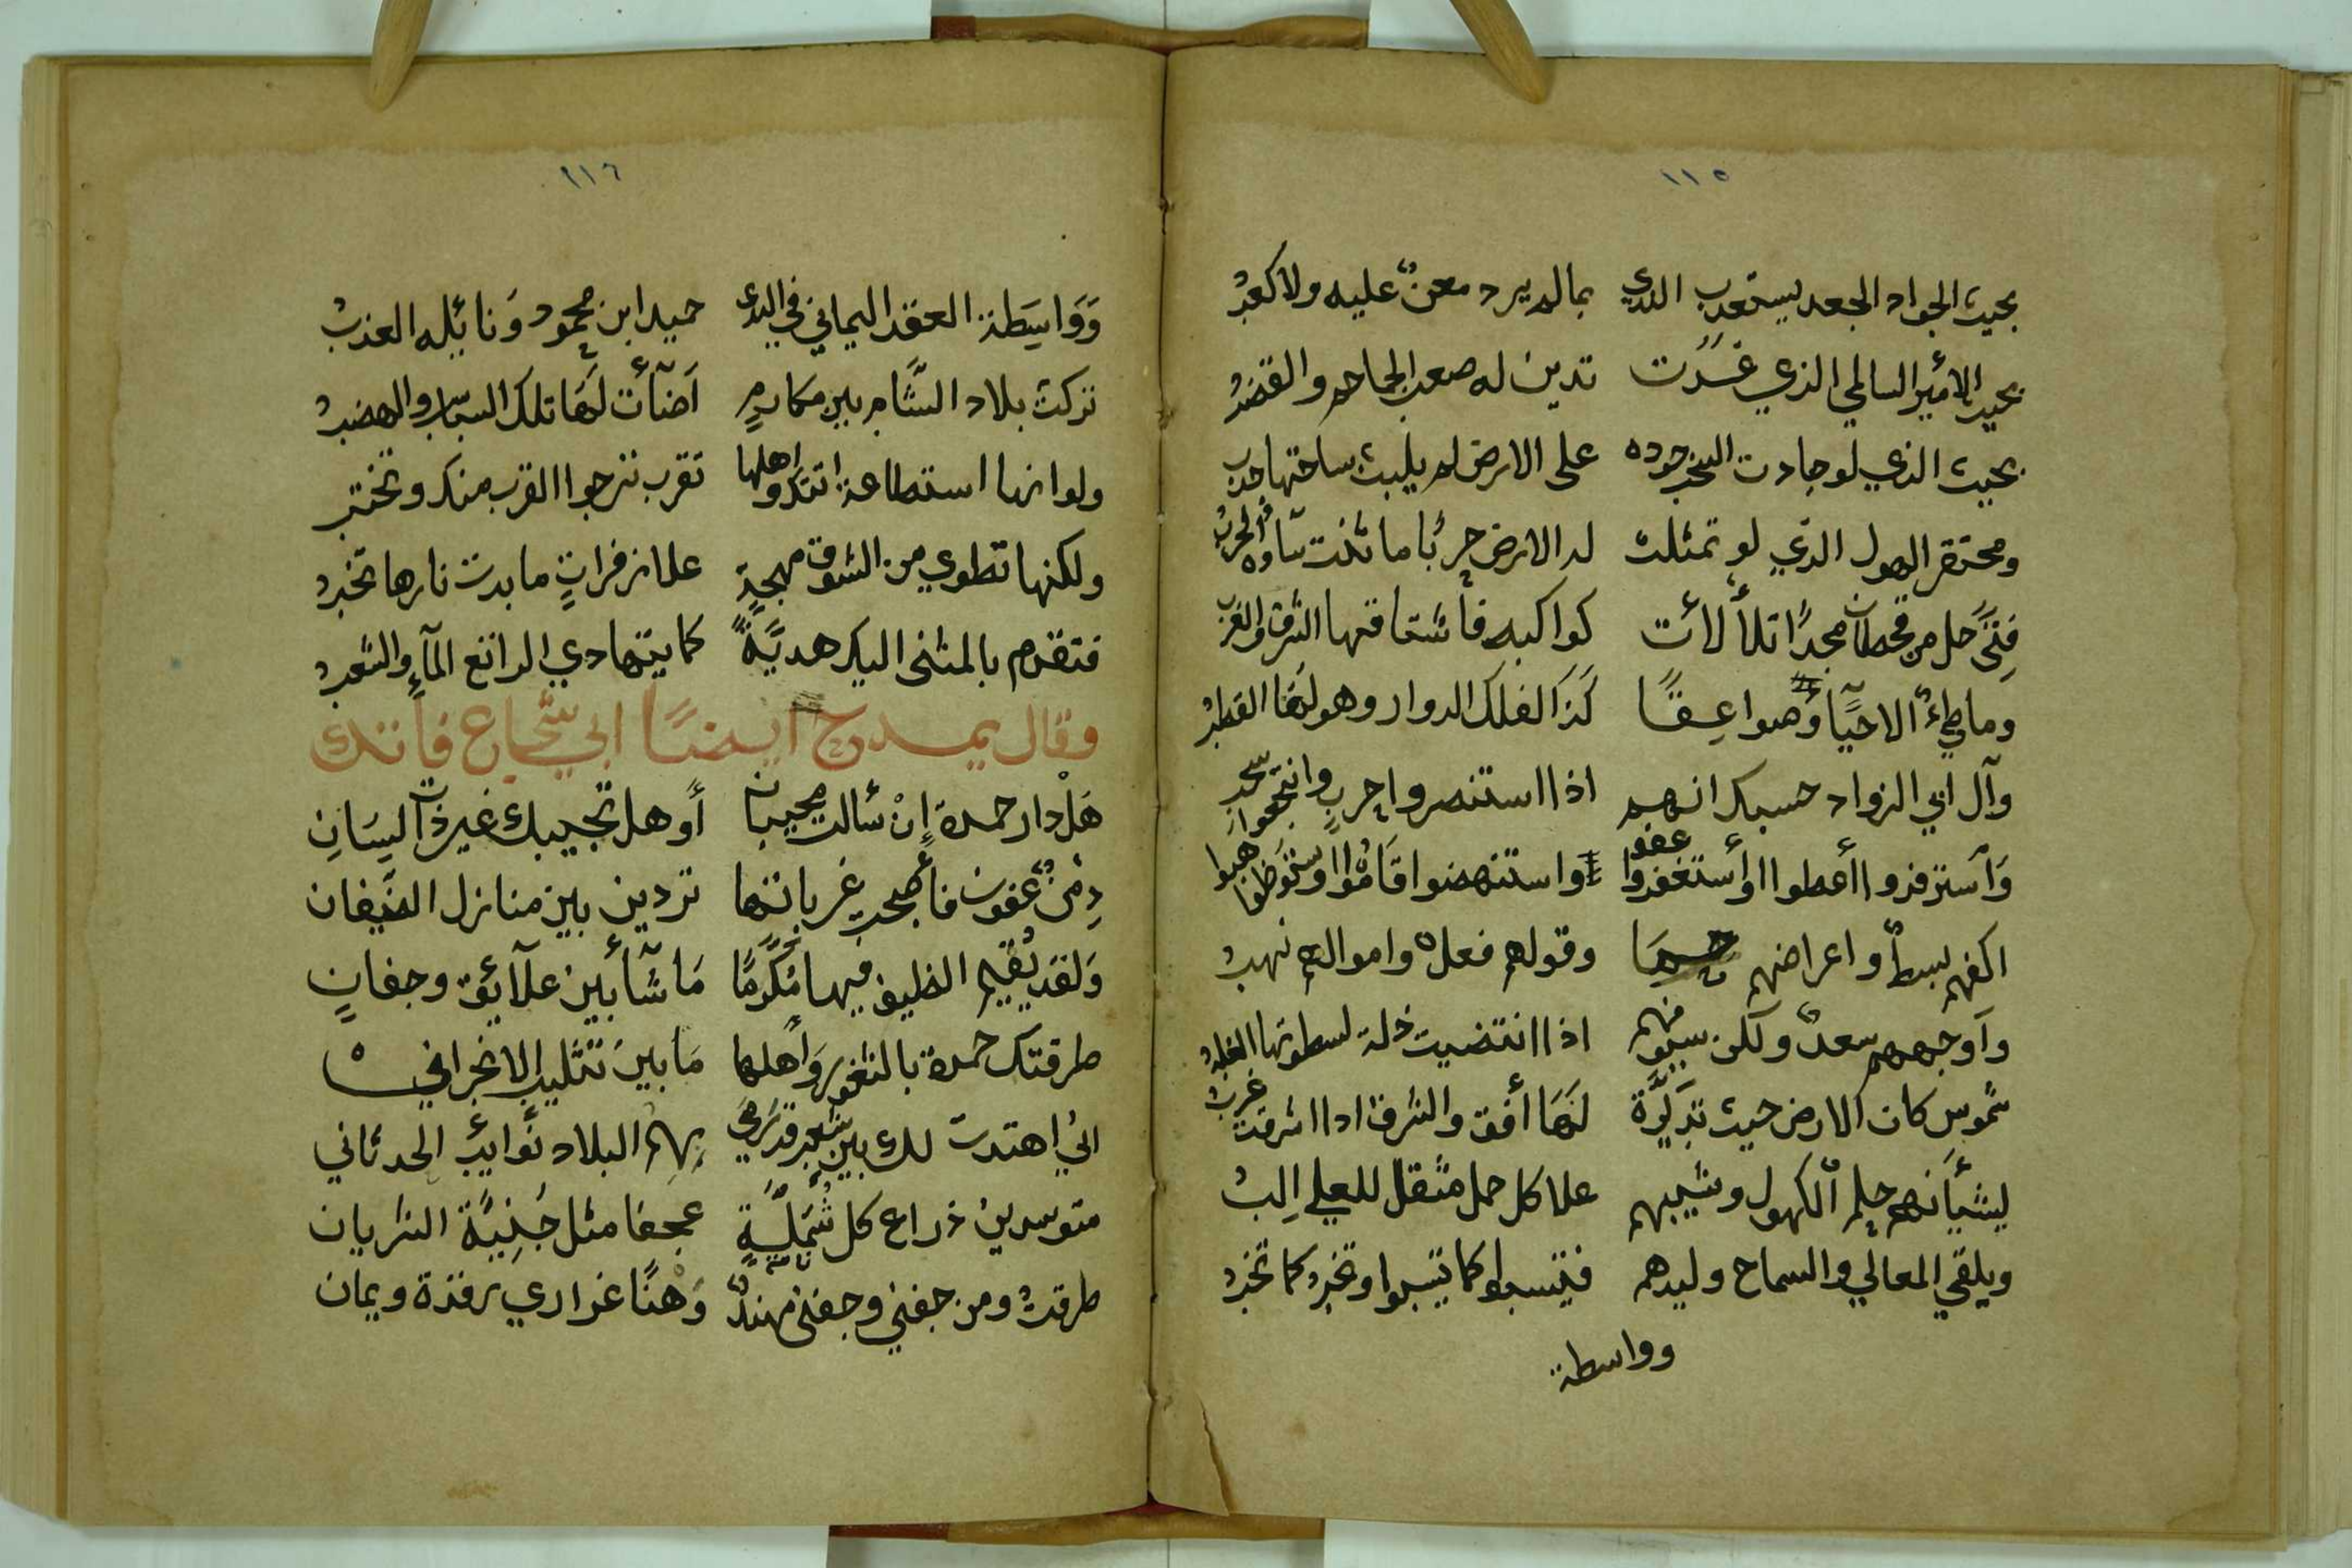 ١١٥
بحيث الجواد الجعد يستعذب الندي بمالم يرد معنٌ عليه ولا كعبُ
بحيث الامير السالمي الذي غَدَت تدين له صعب الجماجم والقضبُ
بحيث الذي لو جادت السحب جوده على الارض لم يلبث بساحتها جدب
ومحتقر الهول الذي لو تمثلت له الارض حربًا ما ثنت شاوه الحربُ
فتًى حل من قحطان مجدًا تلألأت كواكبه فاشتاقها الشرق والغرب
وما طيءُ الاحيآ وُصوا عِقًا كَذَا لفلك الدوار وهو لَهَا القطبُ
وآل ابي الزواد حسبك انهم اذا استنصروا حربٍ وانتجعوا سحب
وَاسترفزوا أعطوا وأستغفروا عفو واستنهضوا قَامُوا واستوَهبوا
اكفهم بسطٌ واعراضهم حما وقولهم فعل واموالهم نهبُ
وآوجههم سعدٌ ولكن سيوفهم اذا انتضيت ذلة لسطوتها الغلبُ
شموس كان الارض حيث تبَوَّة لَهَا أفق والشرق اذا اشرقت غربُ
يشيأنهم حلم الكهول وشيبهم علا كل حمل مثقل للعلي اِلبُ
ويلقي المعالي والسماح وليدهم فيتسبوا كما يتسبوا وتخبُ كما تخبُ
وواسطة
١١٦
وَوَاسِطة العقد اليماني في الندى حميد ابن محمود وَنائِله العذبُ
تركت بلاد الشَّام بين مكارمٍ اَضآءت لَهَا تلك السباسب والهضبُ
ولو انها اسطاعة اتتكم واهلها تقرب ترجوا القرب منك وتختب
ولكنها تطوي من الشوق مهجةٍ علا زفراتٍ ما بدت نارها تخبُ
فتقدم بالمثنى اليك هديَّةً كما يتهادي الراتع المآء والشعبُ
وقال يمدح ايضًا ابي شجاع فاتك
هَلْ دار حمدة اِنْ سالت مجيبان أو هل تجيبك غير ذات لِسَانِ
دِمنٌ عفون فأصحبت غربانها تردين بين منازل الضيفان
وَلقد يُقيم الظليف فيها مُكَرَّمًا مَا شآ بين علآيق وجفانٍ
طرقتك حمدة بالثغور وَأهلها مَا بين تثليب الا نجراني
انيُ اهتدت لك بين شعب قد رمي بهم البلاد نَوايبُ الحدثاني
متوسدين ذراع كل شُمَلَّيةٍ عجفا مثل حَنِيَّة الشريان
طرقتُ ومن جفني وجفني مهندٌ وَهنًا غراري رقدة ويمان